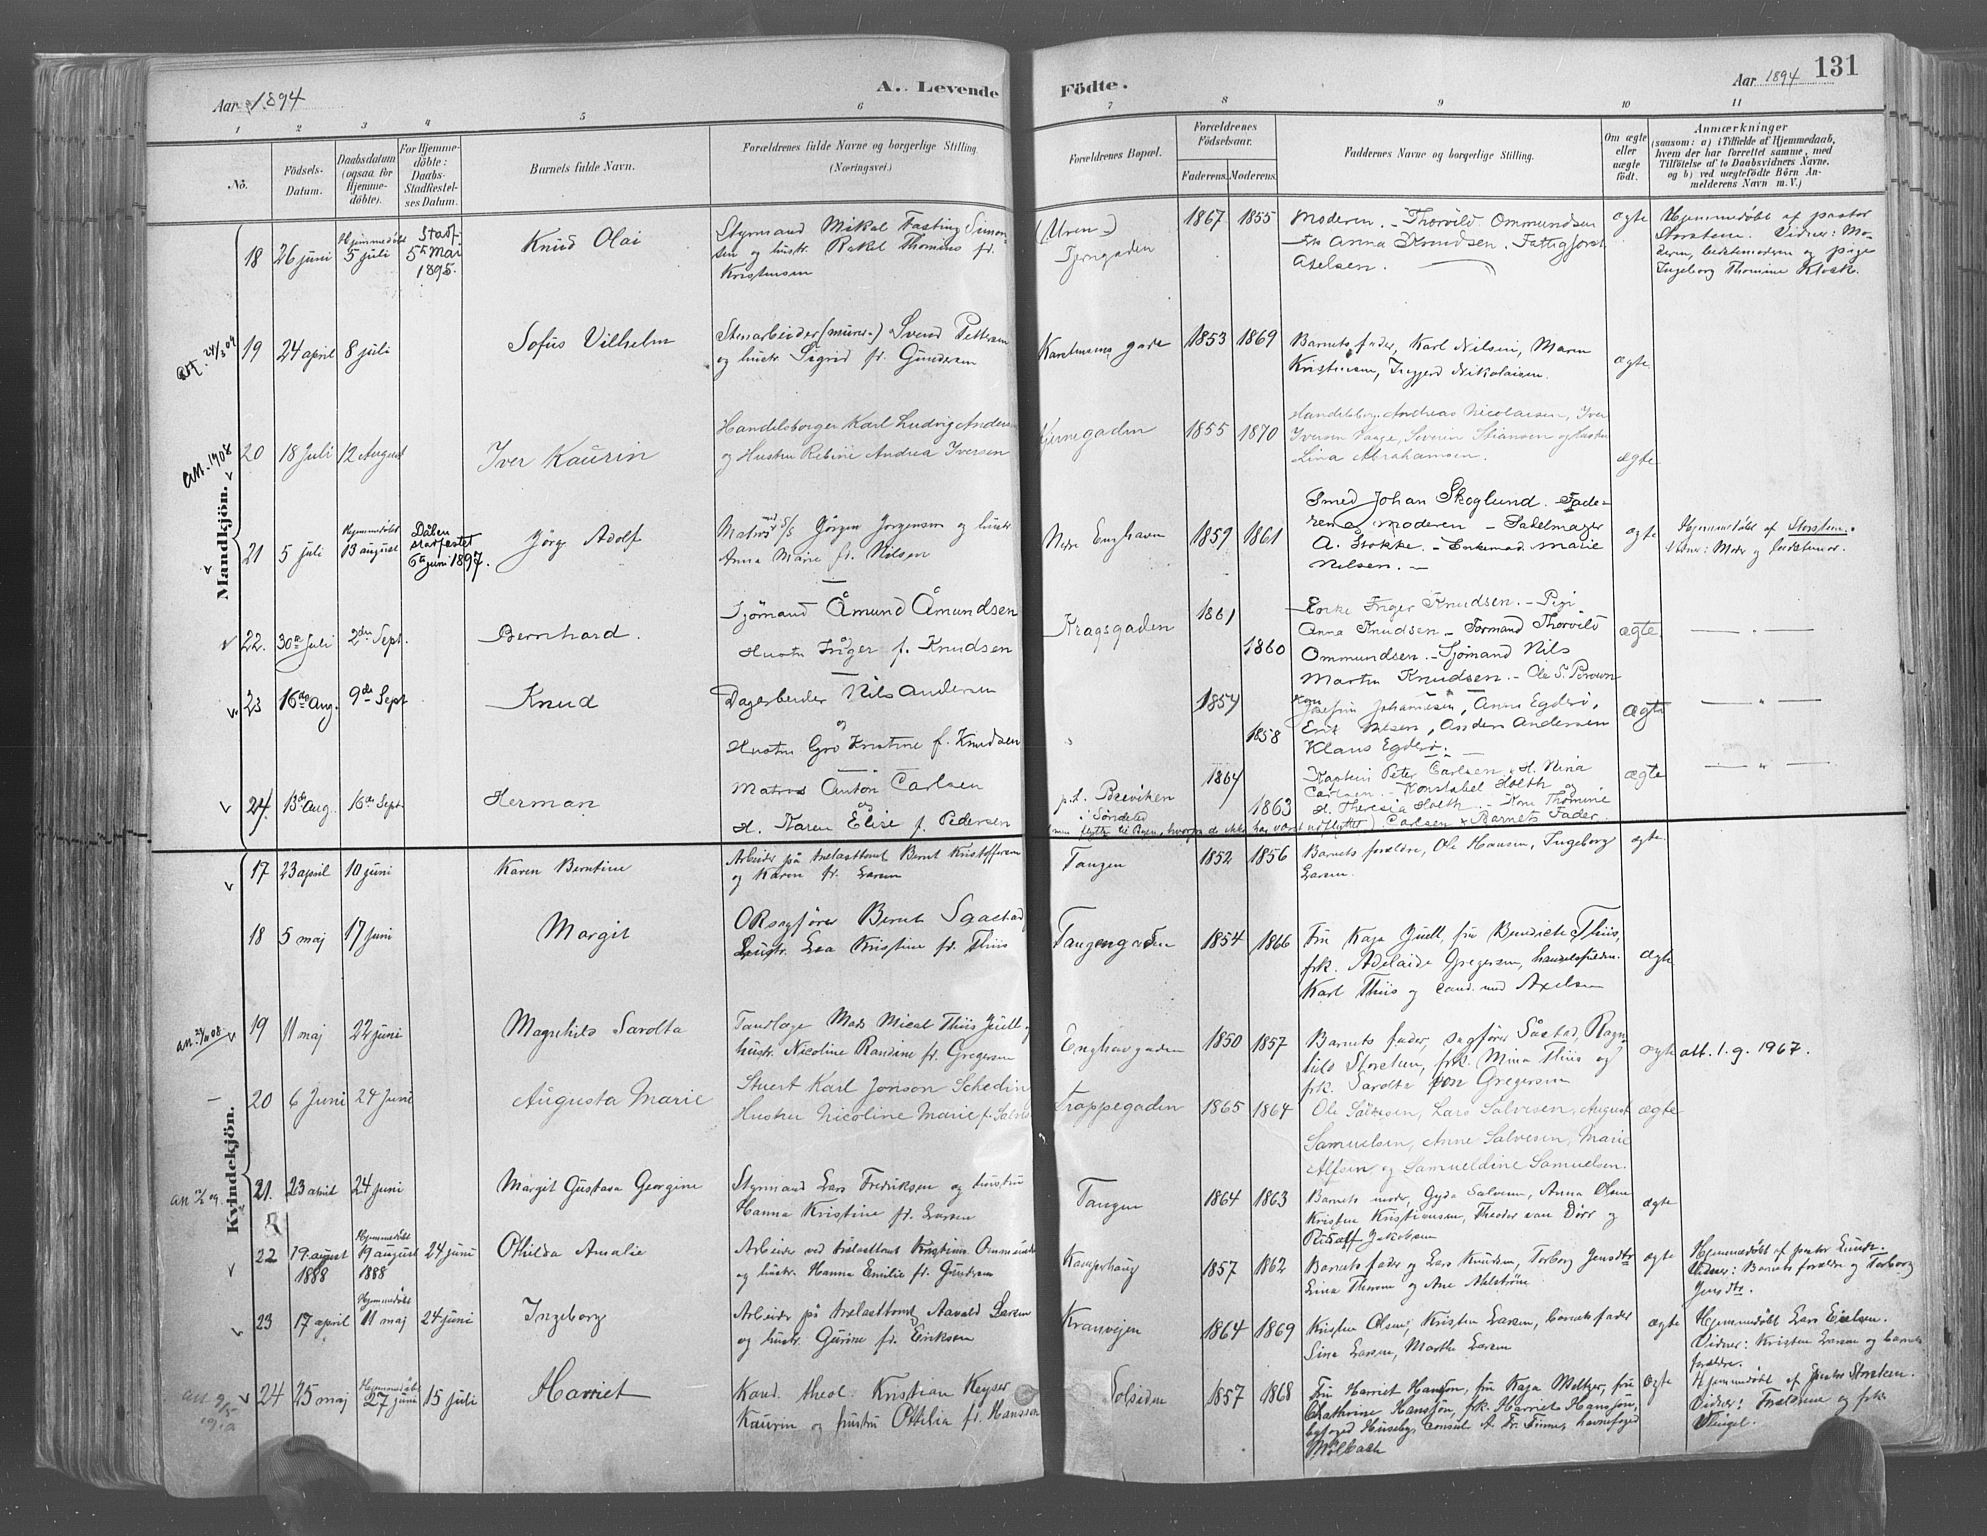 Aar 1894
A. Levende
Födte.
Aar 1894
131
1 2 3 4 5 6 7 8 9 10 11
No.
Födsels-
Datum.
Daabsdatum
(ogsaa for
Hjemme-
döbte).
For Hjemme-
döbte:
Daabs-
Stadfæstel-
ses Datum.
Barnets fulde Navn.
Forældrenes fulde Navne og borgerlige Stilling.
(Næringsvei.)
Forældrenes Bopæl.
Forældrenes
Födselsaar.
Faderens. Moderens.
Faddernes Navne og borgerlige Stilling.
Om ægte
eller
uægte
födt.
Anmærkninger
(saasom: a) i Tilfælde af Hjemmedaab,
hvem der har forrettet samme, med
Tilföielse af to Daabsvidners Navne.
og b) ved uægtefödte Börn An-
melderens Navn m. V.)
Mandkjön.
18 26 juni Hjemmedöbt 5 juli Stadf. 5te Mai 1895. Knud Olai
Styrmand Mikal Fasting Simon-
sen og hustr. Rakel Thomine fr.
Kristensen
1867 1855
Moderen. Thorvild Ommundsen
Anna Knudsen.
Axelsen.
ægte
Hjemmedöbt af pastor
Storsten. Vidner: Mo-
deren, bedstemoderen og pige
Ingeborg Thomine Klosk.
19 24 april 8 juli Sofus Vilhelm
Stenarbeider (murer) Svend Pettersen
og hustr. Sigrid fr. Gundersen
Karstensens gade 1853 1869
Barnets fader, Karl Nilsen, Maren
Kristensen, Ingjerd Nikolaisen.
ægte
an. 1908
20 18 Juli 12 August Iver Kaurin
Handelsborger Karl Ludvig Anders
og Hustru Rebine Andrea Iversen
1855 1870
Handelsborg. Andreas Nicolaisen, Iver
Iversen Vaage, Severin Stiansen og hustru
Lina Abrahamsen.
ægte
21 5 juli Hjemmedöbt 13 august Dåben stadfestet 6te juni 1897. Jörg Adolf
Matros med S/S Jörgen Jorgensen og hustr.
Anna Marie fr. Nilsen
Nedre Enghaven 1859 1861
Smed Johan Skoglund. Fade-
ren & Moderen – Sadelmager
A. Stokke. – Enkemad. Marie
Nilsen. –
ægte
Hjemmedöbt af Storsten.
Vidner: Moder og bedstemor.
22. 30te Juli 2den Sept. Bernhard.
Sjömand Åmund Åmundsen
og
Hustr. Inger f. Knudsen
Kragsgaden 1861
1860
Enke Inger Knudsen. – Pige
Anna Knudsen – Formand Thorvild
Ommundsen. – Sjömand Nils
Martin Knudsen. – Ole S. Povun
ægte
— „ —
23 16de Aug. 9de Sept Knud
Dagarbeider Nils Andersen
og
Hustru Gro Kristine f. Knudsen
„
1854
1858
Kone Josefine Johannesen, Anne Egderö,
Erik Nilsen, Anders Andersen
Klaus Egderö.
ægte
— „ —
24. 13de Aug. 16de Sept Herman
Matros Anton Carlsen
og
H. Karen Elise f. Pedersen
p.t. Boeviken
i Söndeled
1864
1863
Kaptein Peter Carlsen, H. Nina
Carlsen – Konstabel Holth og
H. Theresia Holth. – Kone Thomine
Carlsen & Barnets Fader.
ægte
— „ —
Kvindekjön.
17 23 april 10 juni Karen Berntine
Arbeider på trelasttomt Bernt Kristoffersen
og Karen fr. Larsen
Tangen 1852 1856
Barnets forældre, Ole Hansen, Ingeborg
Larsen.
ægte.
18 5 maj 17 juni Margit
ORsagförer Bernt Saastad
hustr. Eva Kristine fr. Thiis
Tangengaden 1854 1866
Fru Kaja Juell, fru Benedicte Thiis,
frk. Adelaide Gregersen, handelsfuldm.
Karl Thiis og Cand. med Axelsen
ægte
19 11 maj 22 juni Magnhild Sardta
Tandlæge Mads Mical Thiis Juell og
hustr. Nicoline Randine fr. Gregersen
Enghavgaden 1850 1857
Barnets fader, sagförer Såstad, Ragn-
hild Storsten, frk. Mina Thiis og
frk. Sardta Gregersen
ægte
att. 1.9.1967.
20 6 Juni 24 Juni Augusta Marie
Stuert Karl Jonson Schedin
Hustru Nicoline Marie f. Salves
Trappegaden 1865 1864
Ole Salvesen, Lars Salvesen, August
Samuelsen, Anne Salvesen, Marie
Alfsen og Samueldine Samuelsen.
ægte
21. 23 april 24 juni Margit Gustava Georgine
Styrmand Lars Fredriksen og hustru
Hanna Kristine fr. Larsen
Tangen 1864 1863
Barnets moder, Gyda Salvesen, Anna Olsen
Kristen Kristiansen, Theodor van Dörr og
Rudolf Jakobsen
ægte
22 19. august 1888 Hjemmedöbt 19 august 1888 24 juni Othilda Amalie
Arbeider ved trelasttomt Kristian Ommundsen
og hustr. Hanna Emilie fr. Gundersen
Kamperhaug 1857 1862
Barnets fader og Lars Knudsen, Torborg Jensdtr
Lina Thorsen og Ane Ahlström
ægte
Hjemmedöbt af pastor Lunde.
Vidner: Barnets forældre og Torborg
Jensdtr.
23 17 april Hjemmedöbt 11 maj 24 juni Ingeborg
Arbeider på trelasttomt Aavald Larsen
og hustr. Gurine fr. Eriksen
Kranvejen 1864 1869
Kristen Olsen, Kristen Larsen, barnets fader
Sina Larsen, Marthe Larsen
ægte
Hjemmedöbt Lars Eielsen.
Vidner: Kristen Larsen og barnets
forældre.
24 25 maj Hjemmedöbt 27 juni 15 juli Harriet
Kand. theol. Kristian Keyser
Kaurin og frustru Othilia fr. Hansson
Solsiden 1857 1868
Fru Harriet Hansson, fru Kaja Meltzer, fru
Chathrine Hansson, frk. Harriet Hansson,
byfoged Huseby, consul A. Fr. Finne, havnefoged
Molbach
ægte
Hjemmedöbt af pastor Storsten.
Vidner: Forældrene og frk.
Stengel.